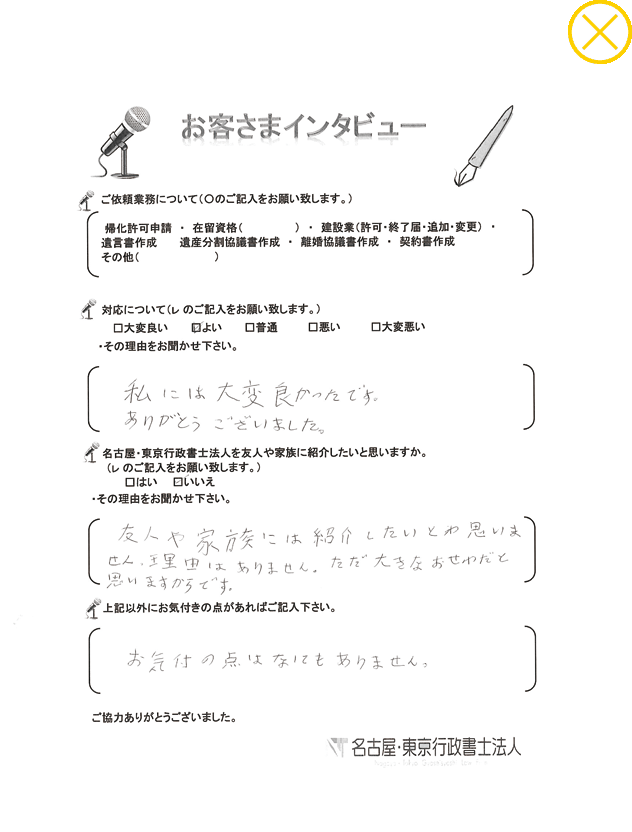 お客さまインタビュー
ご依頼業務について(〇のご記入をお願い致します。)
帰化許可申請 ・ 在留資格(　　　　) ・ 建設業(許可・終了届・追加・変更) ・
遺言書作成　遺産分割協議書作成 ・ 離婚協議書作成 ・ 契約書作成
その他(　　　　　　)
対応について(レ のご記入をお願い致します。)
□大変良い　☑よい　□普通　□悪い　□大変悪い
・その理由をお聞かせ下さい。
私には大変良かったです。
ありがとうございました。
名古屋・東京行政書士法人を友人や家族に紹介したいと思いますか。
(レ のご記入をお願い致します。)
□はい　☑いいえ
・その理由をお聞かせ下さい。
友人や家族には紹介したいとわ思いま
せん、理由はありません。ただ大きなおせわだと
思いますからです。
上記以外にお気付きの点があればご記入下さい。
お気付の点はなにもありません。
ご協力ありがとうございました。
名古屋・東京行政書士法人